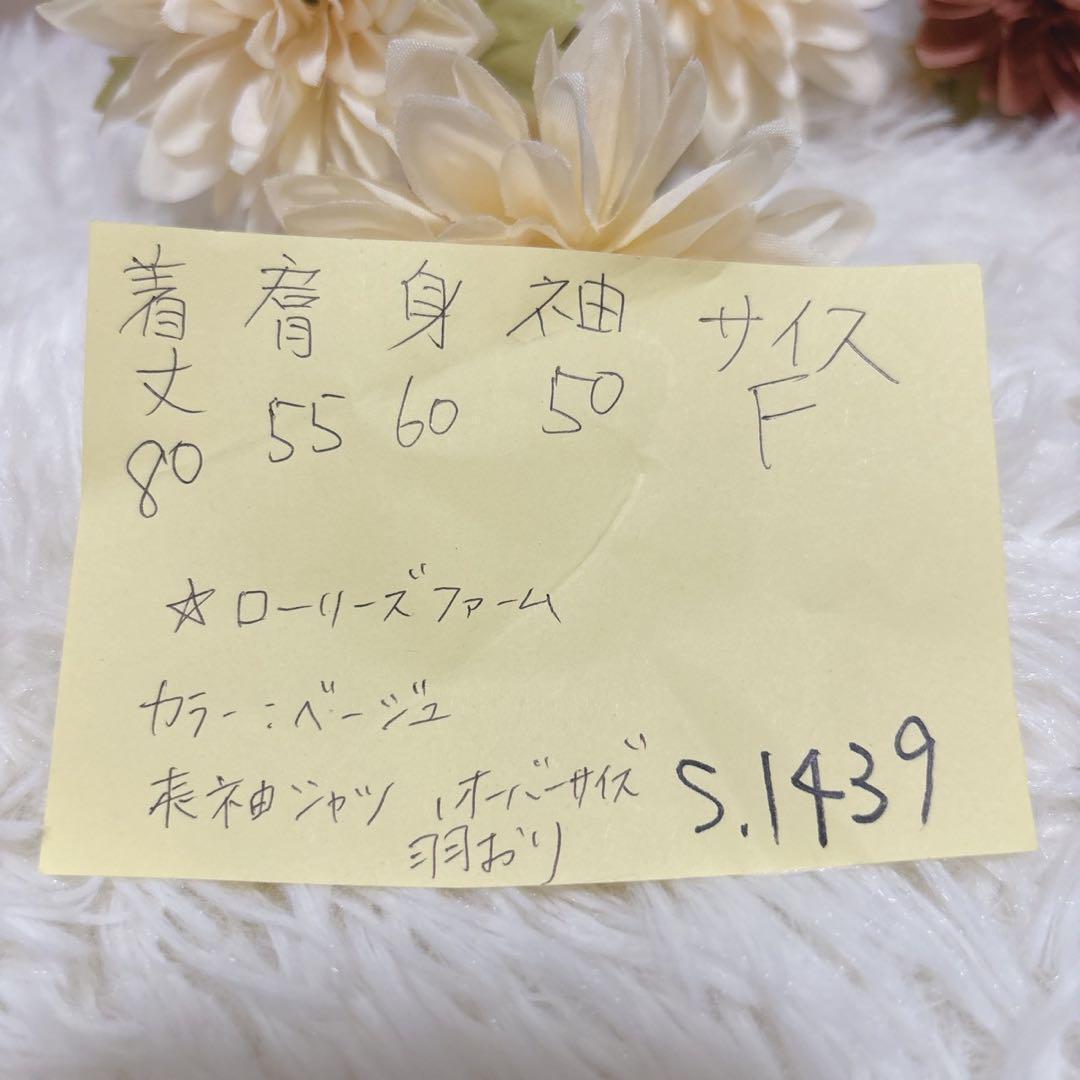 着丈 肩 身 袖 サイズ
80 55 60 50 F
☆ローリーズファーム
カラー：ベージュ
長袖シャツ，オーバーサイズ
羽おり
S.1439